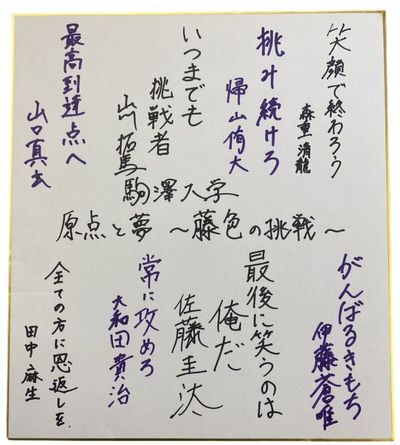 笑顔で終わろう
森重清龍
挑み続けろ
帰山侑大
いつまでも
挑戦者
山川拓馬
最高到達点へ
山口真玄
駒澤大学
原点と夢 〜藤色の挑戦〜
がんばるきもち
伊藤蒼唯
最後に笑うのは
俺だ
佐藤圭汰
常に攻めろ
大和田貴治
全ての方に恩返しを.
田中麻生